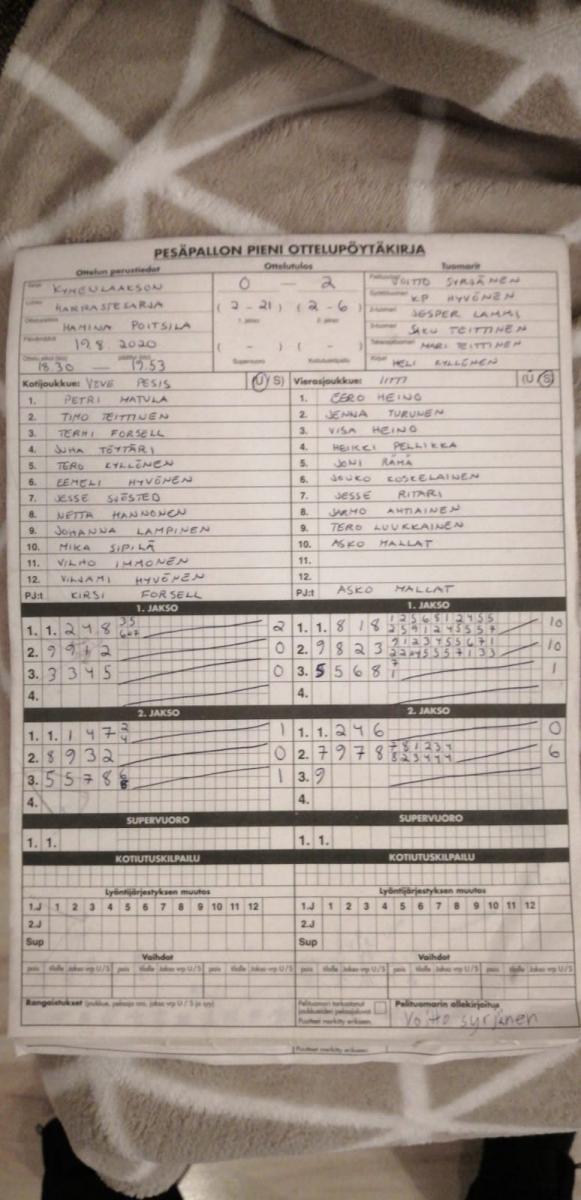 PESÄPALLON PIENI OTTELUPÖYTÄKIRJA
Ottelun perustiedot
Ottelutulos
Tuomarit
KYMENLAAKSON
HARRASTESARJA
HAMINA POITSILA
19.8.2020
18.30 — 19.53
0 — 2
(2-21) (2-6)
1. jakso 2. jakso
( - ) ( - )
Supervuoro Kotiutuskilpailu
VOITTO SYRJÄNEN
KP HYVÖNEN
JESPER LAMMI
SAKU TEITTINEN
MARI TEITTINEN
HELI KYLLÖNEN
Kotijoukkue: VEVE PESIS (U/S)
1. PETRI MATULA
2. TIMO TEITTINEN
3. TERHI FORSELL
4. JUHA TÖYTÄRI
5. TERO KYLLÖNEN
6. EEMELI HYVÖNEN
7. JESSE SJÖSTED
8. NETTA HANNONEN
9. JOHANNA LAMPINEN
10. MIKA SIPILÄ
11. VILHO IMMONEN
12. VILJAMI HYVÖNEN
PJ:t KIRSI FORSELL
Vierasjoukkue: IITTI (U/S)
1. EERO HEINO
2. JENNA TURUNEN
3. VISA HEINO
4. HEIKKI PELLIKKA
5. JONI RÄMÄ
6. JOUKO KOSKELAINEN
7. JESSE RITARI
8. JARMO AHTIAINEN
9. TERO LUUKKAINEN
10. ASKO MALLAT
11.
12.
PJ:t ASKO MALLAT
1. JAKSO
1. 1. 2 4 8 2
2. 9 9 1 2 0
3. 3 3 4 5 0
4.
2. JAKSO
1. 1. 1 4 7 2 4 1
2. 8 9 3 2 0
3. 5 5 7 8 1
4.
SUPERVUORO
1. 1.
KOTIUTUSKILPAILU
1. JAKSO
1. 1. 8 1 8 10
2. 9 8 2 3 10
3. 5 5 6 8 7 1 1
4.
2. JAKSO
1. 1. 2 4 6 0
2. 7 9 7 8 6
3. 9
4.
SUPERVUORO
1. 1.
KOTIUTUSKILPAILU
Lyöntijärjestyksen muutos
1.J 1 2 3 4 5 6 7 8 9 10 11 12
2.J
Sup
Vaihdot
pois tilalle Jakso vrp U/S pois tilalle Jakso vrp U/S
Rangaistukset (joukkue, pelaaja nro, jakso vrp U/S ja syy)
Lyöntijärjestyksen muutos
1.J 1 2 3 4 5 6 7 8 9 10 11 12
2.J
Sup
Vaihdot
pois tilalle Jakso vrp U/S pois tilalle Jakso vrp U/S
Pelituomarin allekirjoitus
Voitto Syrjänen
Puutteet merkitty erikseen.